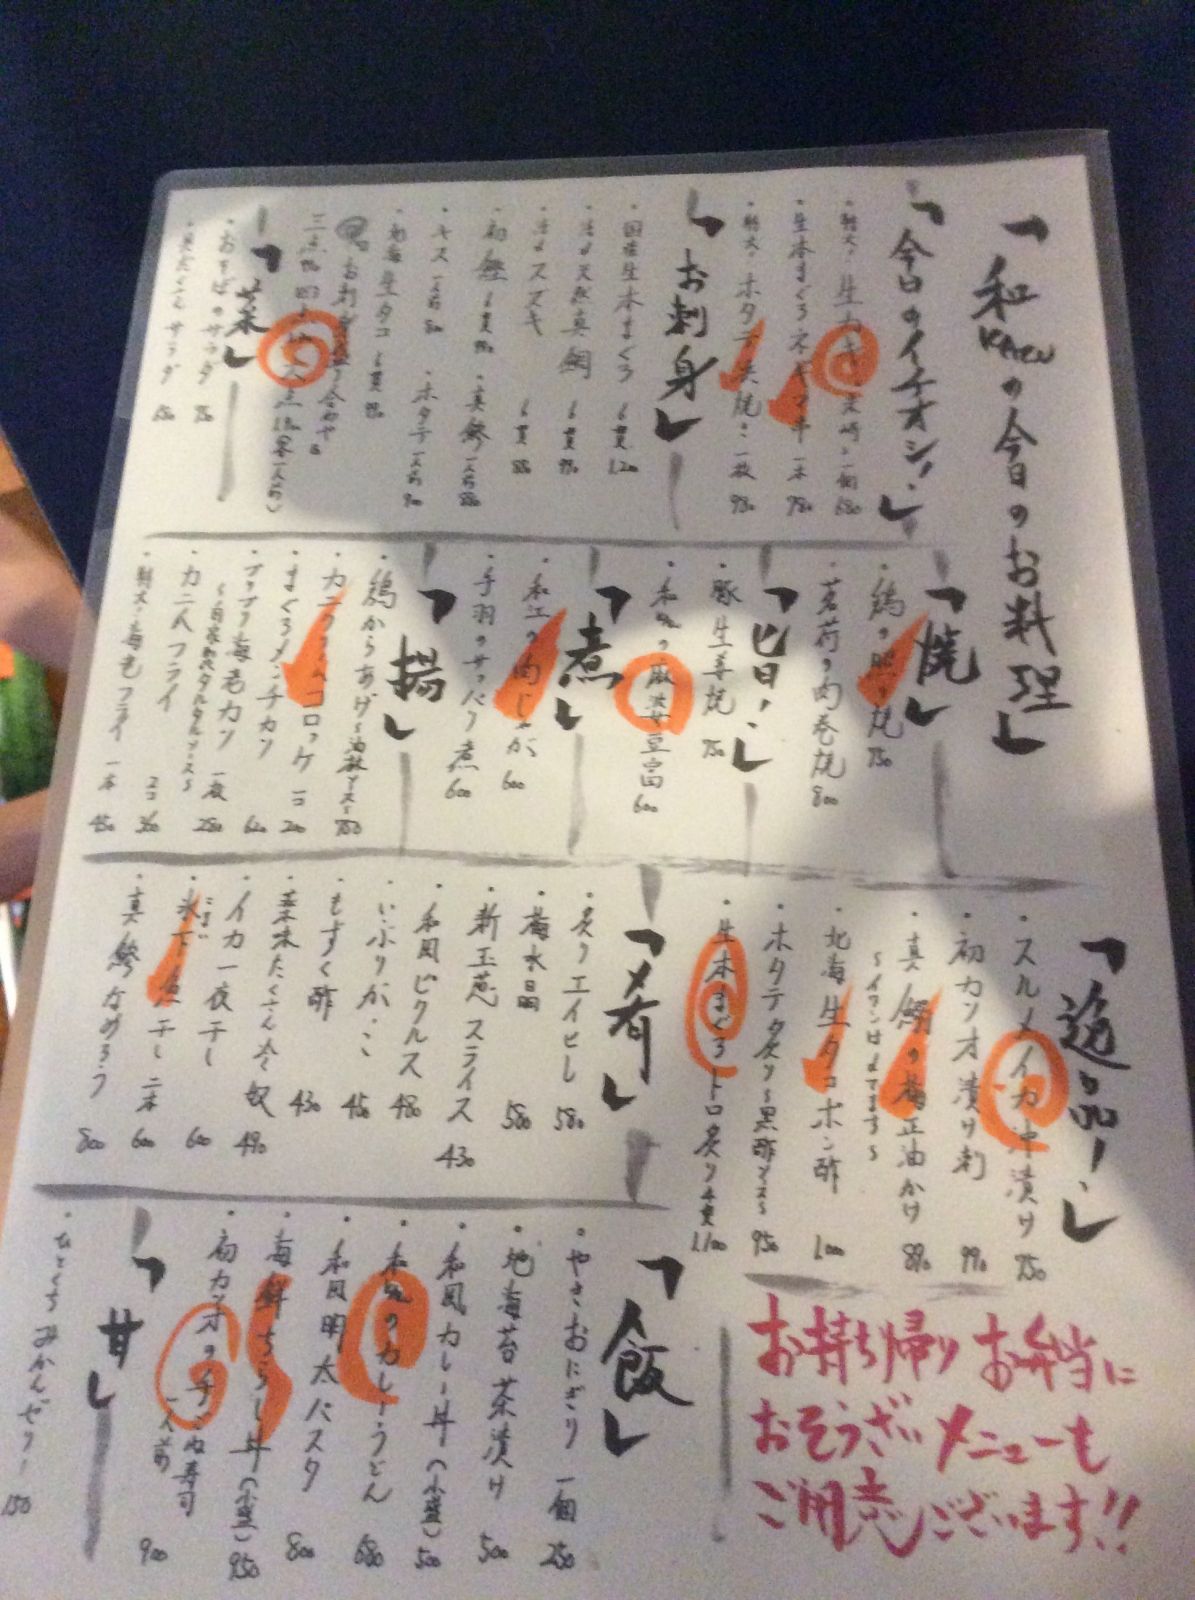 「和
の今日のお料理」
「今日のイチオシ!」
・特大!生カキ 一個 680
・生本まぐろネギマ串 一本 780
・特大!ホタテ 焼 一枚 980
「お刺身」
・国産生本まぐろ 6貫 1,200
・活〆天然真鯛 6貫
・活〆スズキ 6貫
・初鰹 6貫
・真鯵 一人前
・キス 一人前
・ホタテ 一人前 900
・北海生タコ 6貫
お刺身盛り合わせ
三点
「菜」
・おそばのサラダ
サラダ
「焼」
・鶏の照り焼 750
・茗荷の肉巻焼 800
「旨!」
・豚生姜焼 750
・和風の麻婆豆腐 600
「煮」
・和江の肉じゃが 600
・手羽のサッパリ煮 600
「揚」
・鶏からあげ
・カニクリームコロッケ 一コ 200
・まぐろメンチカツ 620
・プリプリ海老カツ 一枚 280
〜自家製タルタルソース〜
・カニ爪フライ 2コ 360
・特大!海老フライ 一本 450
「逸品!」
・スルメイカ沖漬け 750
・初カツオ漬け刺 990
・真鯛の梅正油かけ 890
・北海生タコポン酢
・ホタテ炙り〜黒酢ソース〜 950
・生本まぐろトロ炙り 4貫 1,100
「肴」
・炙りエイヒレ 580
・梅水晶 580
・新玉葱スライス 430
・和風ピクルス 480
・いぶりがっこ 450
・もずく酢 430
・薬味たくさん冷奴 490
・イカ一夜干し 600
こまい
・氷下魚干し 二本 600
・真鯵なめろう 800
「飯」
・やきおにぎり 一個 250
・地海苔茶漬け 500
・和風カレー丼(小盛) 500
・和風のカレーうどん 680
・和風明太パスタ 800
・海鮮ちらし丼(小盛) 950
・初カツオの手こね寿司
一人前 900
「甘」
・ひとくちみかんゼリー 150
お持ち帰り お弁当に
おそうざいメニューも
ご用意ございます!!